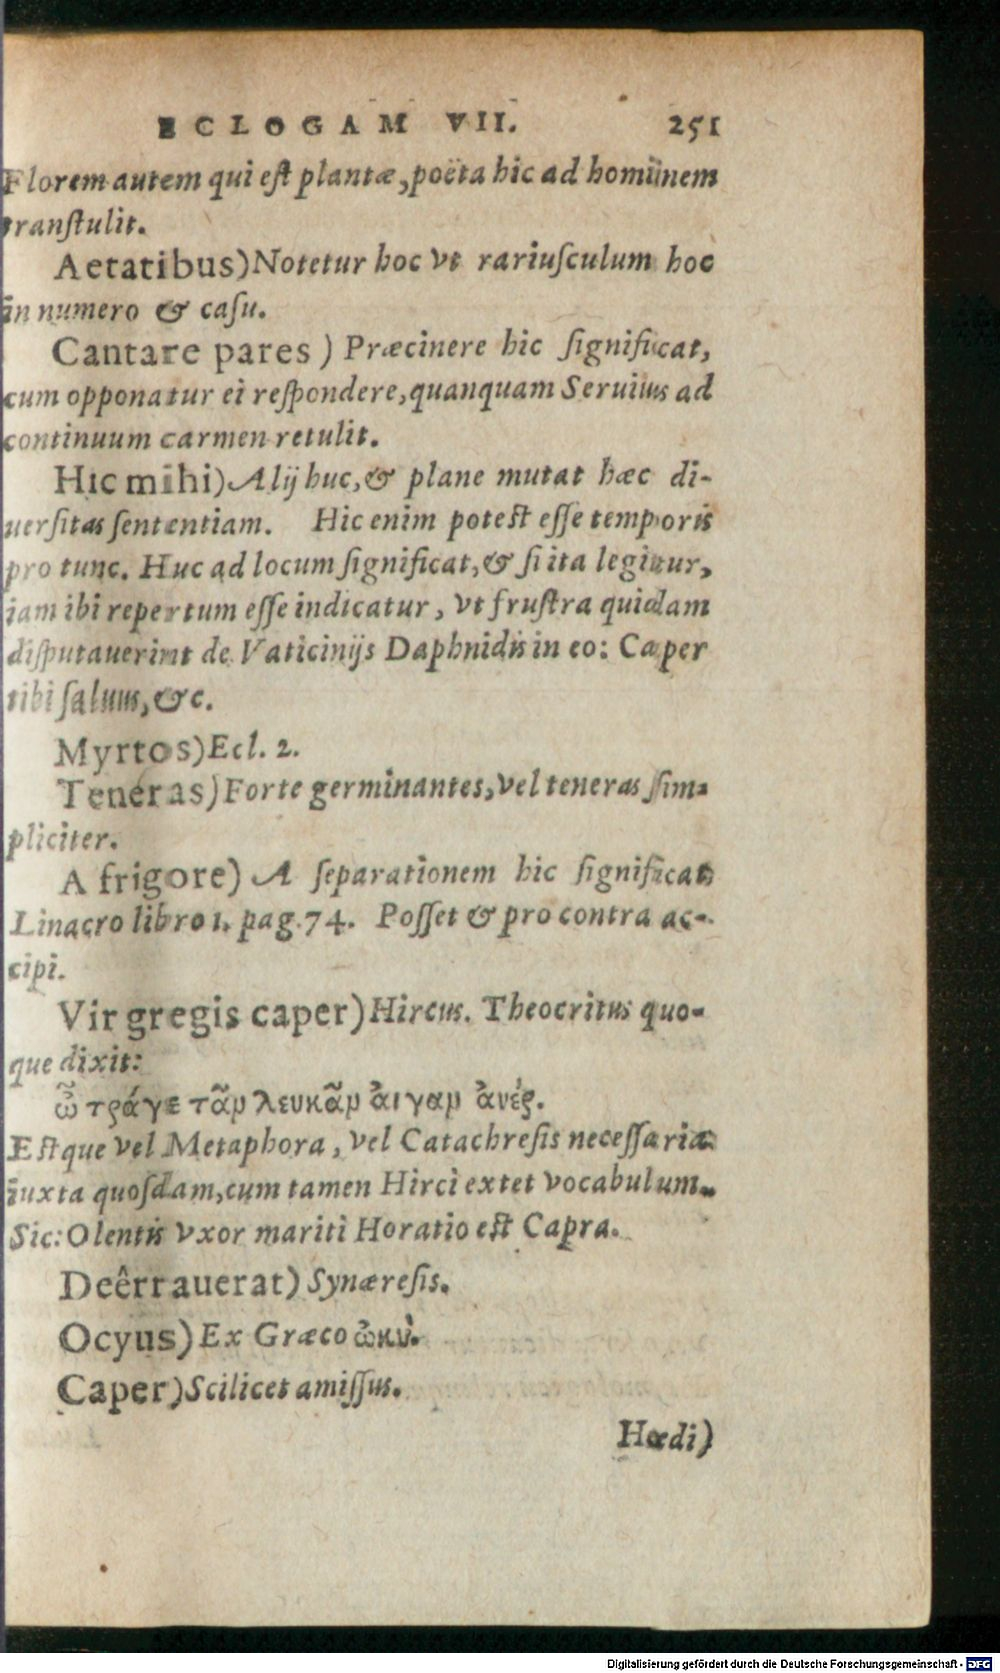 ECLOGAM VII. 251
Florem autem qui eſt plantæ, poëta hic ad hominem
tranſtulit.
Aetatibus) Notetur hoc vt rariuſculum hoc
in numero & caſu.
Cantare pares) Præcinere hic ſignificat,
cum opponatur ei reſpondere, quanquam Seruius ad
continuum carmen retulit.
Hic mihi) Alij huc, & plane mutat hæc di-
uerſitas ſententiam. Hic enim poteſt eſſe temporis
pro tunc. Huc ad locum ſignificat, & ſi ita legitur,
iam ibi repertum eſſe indicatur, vt fruſtra quidam
diſputauerint de Vaticinijs Daphnidis in eo: Caper
tibi ſaluus, &c.
Myrtos) Ecl. 2.
Teneras) Forte germinantes, vel teneras ſim-
pliciter.
A frigore) A ſeparationem hic ſignificat
Linacro libro 1. pag. 74. Poſſet & pro contra ac-
cipi.
Vir gregis caper) Hircus. Theocritus quo-
que dixit:
ὦ τράγε τᾶν λευκᾶν ἀιγαν ἀνέρ.
Eſtque vel Metaphora, vel Catachreſis neceſſaria
iuxta quoſdam, cum tamen Hirci extet vocabulum.
Sic: Olentis vxor mariti Horatio eſt Capra.
Deêrrauerat) Synæreſis.
Ocyus) Ex Græco ὠκὺ.
Caper) Scilicet amiſſus.
Hœdi)
Digitalisierung gefördert durch die Deutsche Forschungsgemeinschaft - DFG